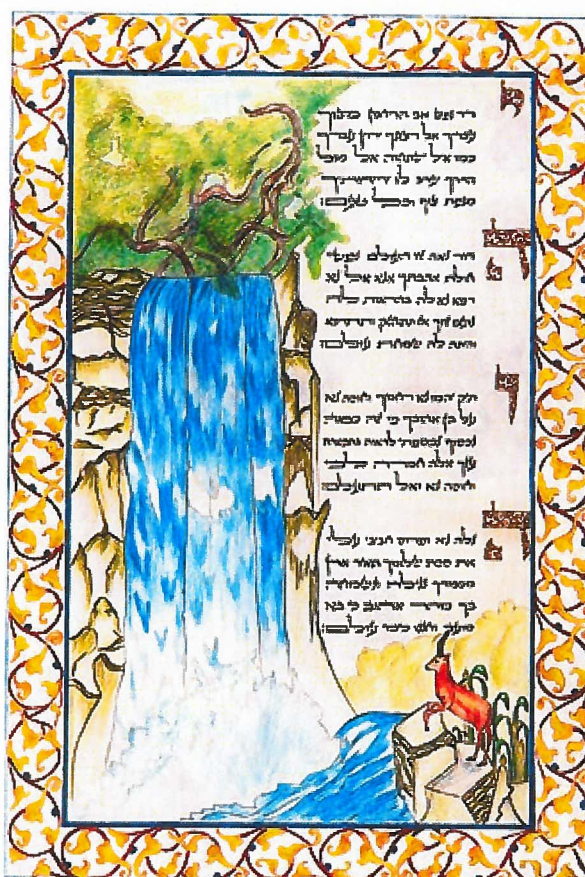 ידיד נפש אב הרחמן משוך
עבדך אל רצונך ירוץ עבדך
כמו איל ישתחוה אל מול
הדרך יערב לו ידידותיך
מנפת צוף וכל טעם:
הדור נאה זיו העולם נפשי
חולת אהבתך אנא אל נא
רפא נא לה בהראות לה
נעם זיוך אז תתחזק ותתרפא
והיתה לה שמחת עולם:
ותיק יהמו נא רחמיך וחוסה נא
על בן אהובך כי זה כמה
נכסוף נכספתי לראות בתפארת
עזך אלה חמדה לבי
וחוסה נא ואל תתעלם:
הגלה נא ופרוש חביבי עלי
את סכת שלומך תאיר ארץ
מכבודך נגילה ונשמחה
בך מהר אהוב כי בא
מועד וחננו כימי עולם: